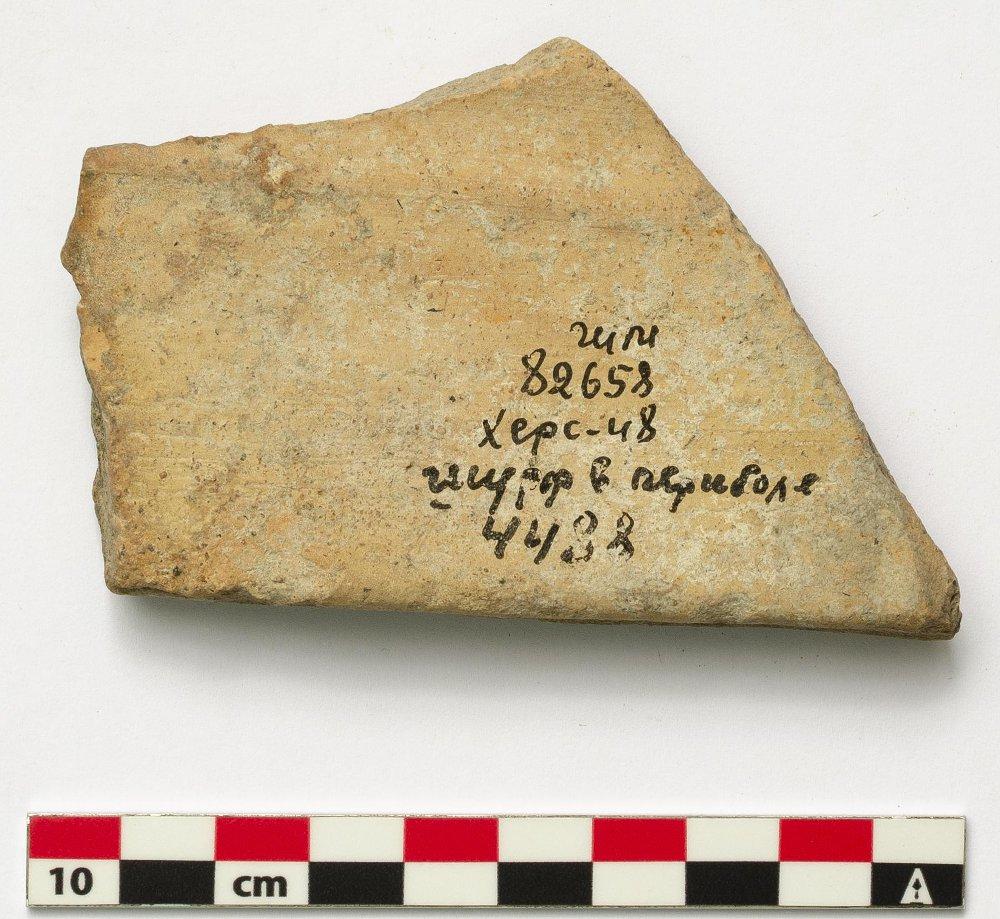 гим
82658
Херс-48
шурф в периболе
4438
10 cm
A